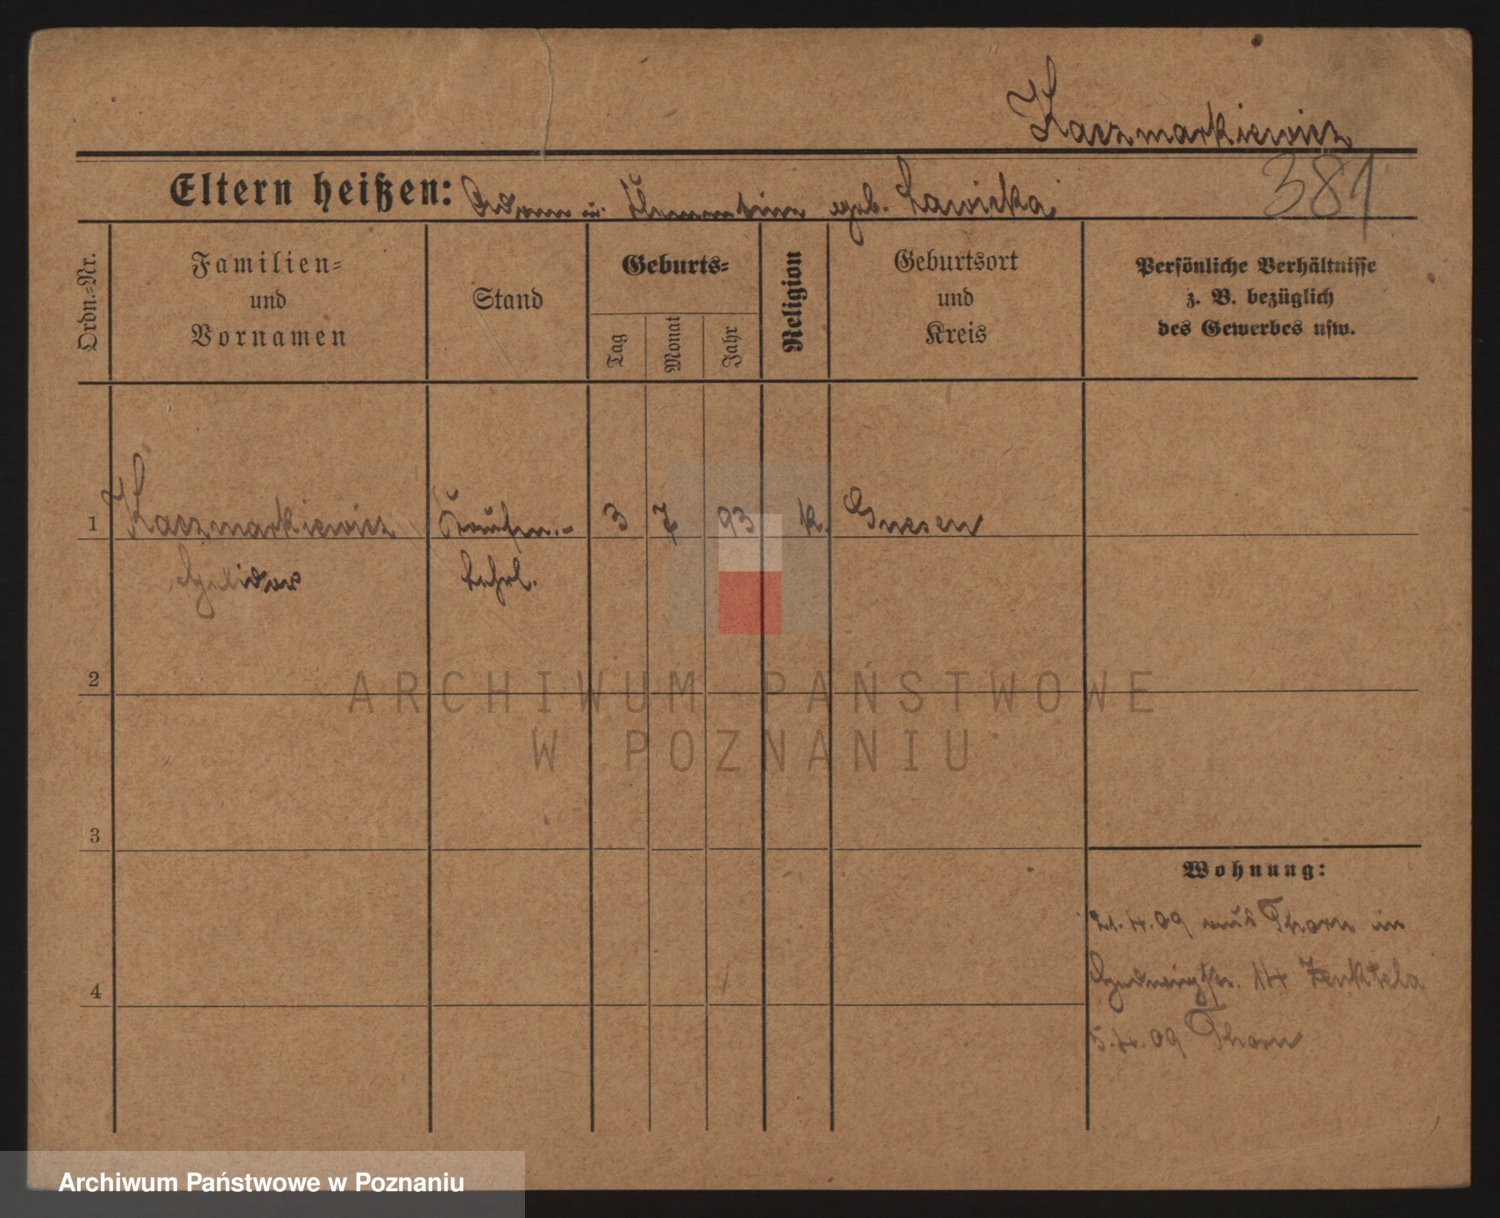 Kaczmarkiewicz
381
Eltern heißen: Adam u. geb. Lawicka
Ordn.-Nr.
Familien-
und
Vornamen
Stand
Geburts-
Tag
Monat
Jahr
Religion
Geburtsort
und
Kreis
Persönliche Verhältnisse
z. B. bezüglich
des Gewerbes usw.
1 Kaczmarkiewicz Kaufm.- 3 7 93 k. Gnesen
Isidor Lehrl.
2
3
4
Wohnung:
21.4.09 aus Thorn in
14 Zenktela
5.4.09 Thorn
ARCHIWUM PAŃSTWOWE
W POZNANIU
Archiwum Państwowe w Poznaniu